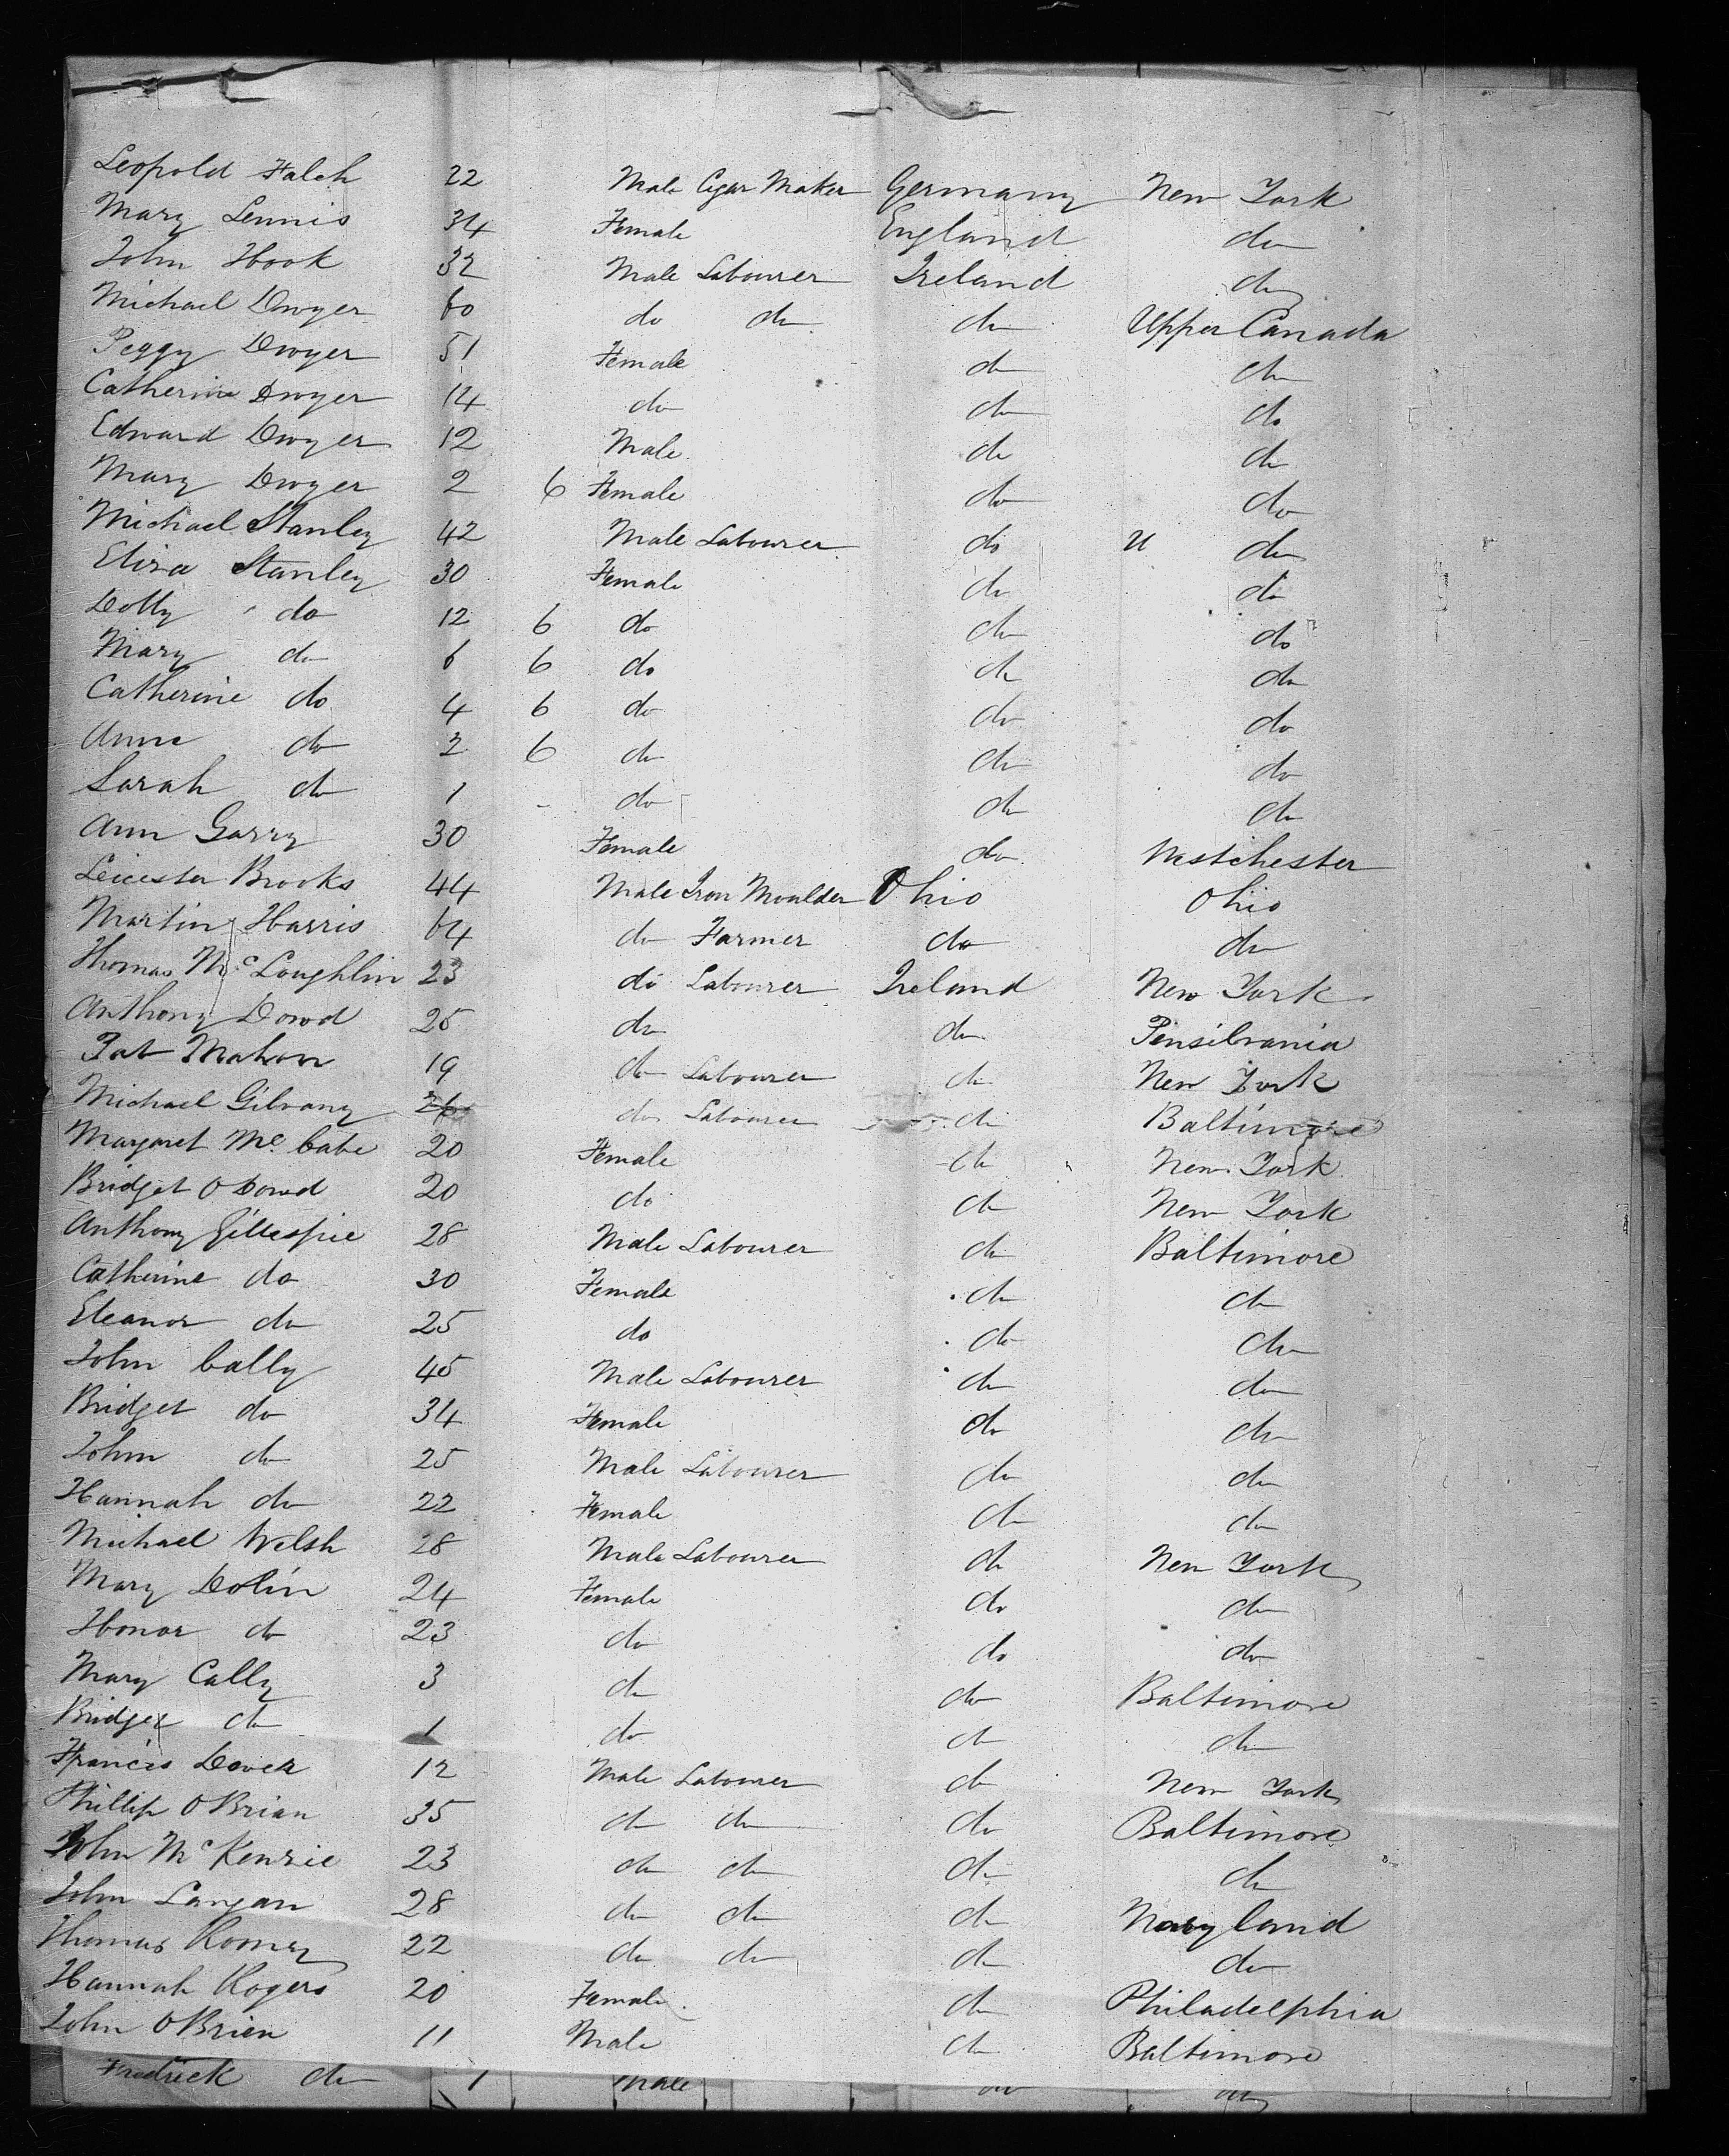 Leopold Falch 22 Male Cigar Maker Germany New York
Mary Lennis 34 Female England do
John Hook 32 Male Labourer Ireland do
Michael Dwyer 60 do do do Upper Canada
Peggy Dwyer 51 Female do do
Catherine Dwyer 14 do do do
Edward Dwyer 12 Male do do
Mary Dwyer 2 6 Female do do
Michael Stanley 42 Male Labourer do U do
Eliza Stanley 30 Female do do
Dolly do 12 6 do do do
Mary do 6 6 do do do
Catherine do 4 6 do do do
Anne do 2 6 do do do
Sarah do 1 - do do do
Ann Garry 30 Female do Westchester
Leicester Brooks 44 Male Iron Moulder Ohio Ohio
Martin Harris 64 do Farmer do do
Thomas McLoughlin 23 do Labourer Ireland New York
Anthony Dowd 25 do do Pensilvania
Pat Mahon 19 do Labourer do New York
Michael Gilvany 26 do Labourer do Baltimore
Margaret McCabe 20 Female do New York
Bridget O Dowd 20 do do New York
Anthony Gillespie 28 Male Labourer do Baltimore
Catherine do 30 Female do do
Eleanor do 25 do do do
John Cally 45 Male Labourer do do
Bridget do 34 Female do do
John do 25 Male Labourer do do
Hannah do 22 Female do do
Michael Welsh 28 Male Labourer do New York
Mary Dolin 24 Female do do
Honor do 23 do do do
Mary Cally 3 do do Baltimore
Bridget do 1 do do do
Francis Dover 12 Male Labourer do New York
Phillip O Brian 35 do do do Baltimore
John McKenzie 23 do do do do
John Langan 28 do do do Maryland
Thomas Rooney 22 do do do do
Hannah Rogers 20 Female do Philadelphia
John O Brien 11 Male do Baltimore
Fredrick do 1 Male do do